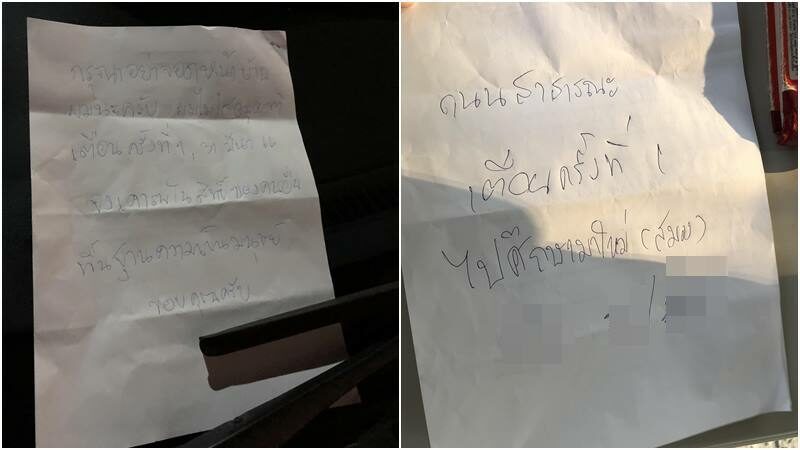 กรุณาอย่าจอดหน้าบ้าน
ผมนะครับ ผมไม่
เตือนครั้งที่ 1, 31 มีนา
จงเคารพในสิทธิ์ของคนอื่น
พื้นฐานความเป็นมนุษย์
ขอบคุณครับ
ถนนสาธารณะ
เตือนครั้งที่ 1
ไปศึกษามาใหม่ (สมอง)